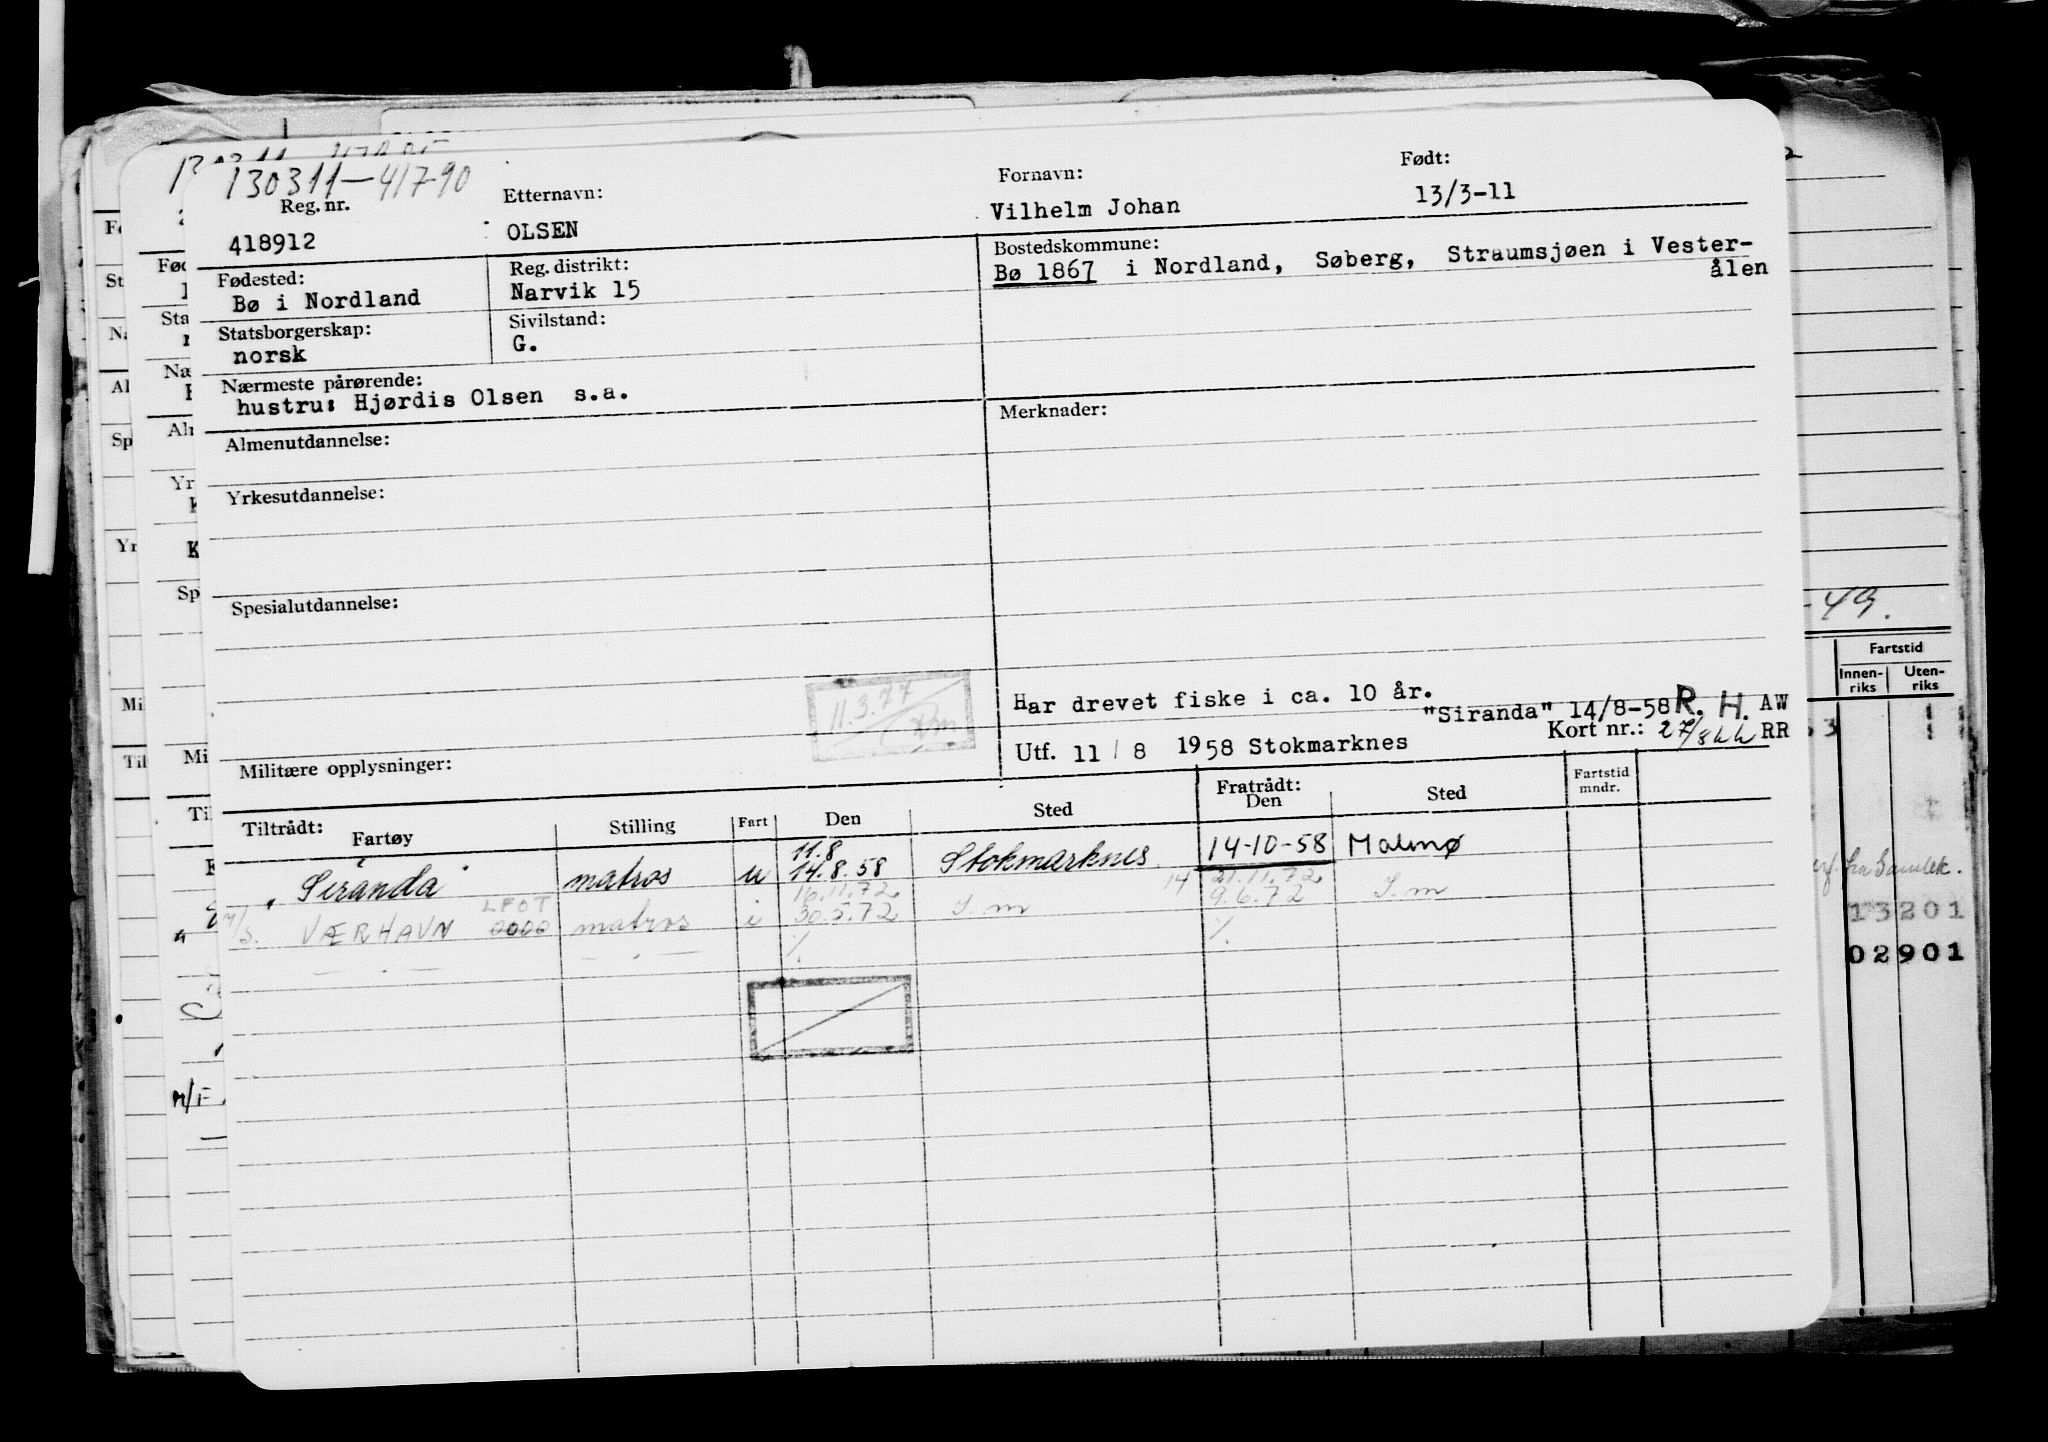 130311-41790
Reg. nr. Etternavn: Fornavn: Født:
418912 OLSEN Vilhelm Johan 13/3-11
Fødested: Reg. distrikt: Bostedskommune:
Bø i Nordland Narvik 15 Bø 1867 i Nordland, Søberg, Straumsjøen i Vester-
ålen
Statsborgerskap: Sivilstand:
norsk G.
Nærmeste pårørende:
hustru: Hjørdis Olsen s.a.
Almenutdannelse: Merknader:
Yrkesutdannelse:
Spesialutdannelse:
11.3.77
Har drevet fiske i ca. 10 år.
"Siranda" 14/8-58 R. H. AW
Utf. 11/8 1958 Stokmarknes Kort nr.: 27/8 RR
Militære opplysninger:
Tiltrådt: Fratrådt: Fartstid
Fartøy Stilling Fart Den Sted Den Sted mndr.
11.8
" Siranda matros u 14.8.58 Stokmarknes 14-10-58 Malmø
16.11.72 14 21.11.72
M/S. VÆRHAVN LFOT 0000 matros i 30.5.72 S.m 9.6.72 S.m
— . — — . — %. %.
-49.
Fartstid
Innen- Uten-
riks riks
13201
02901